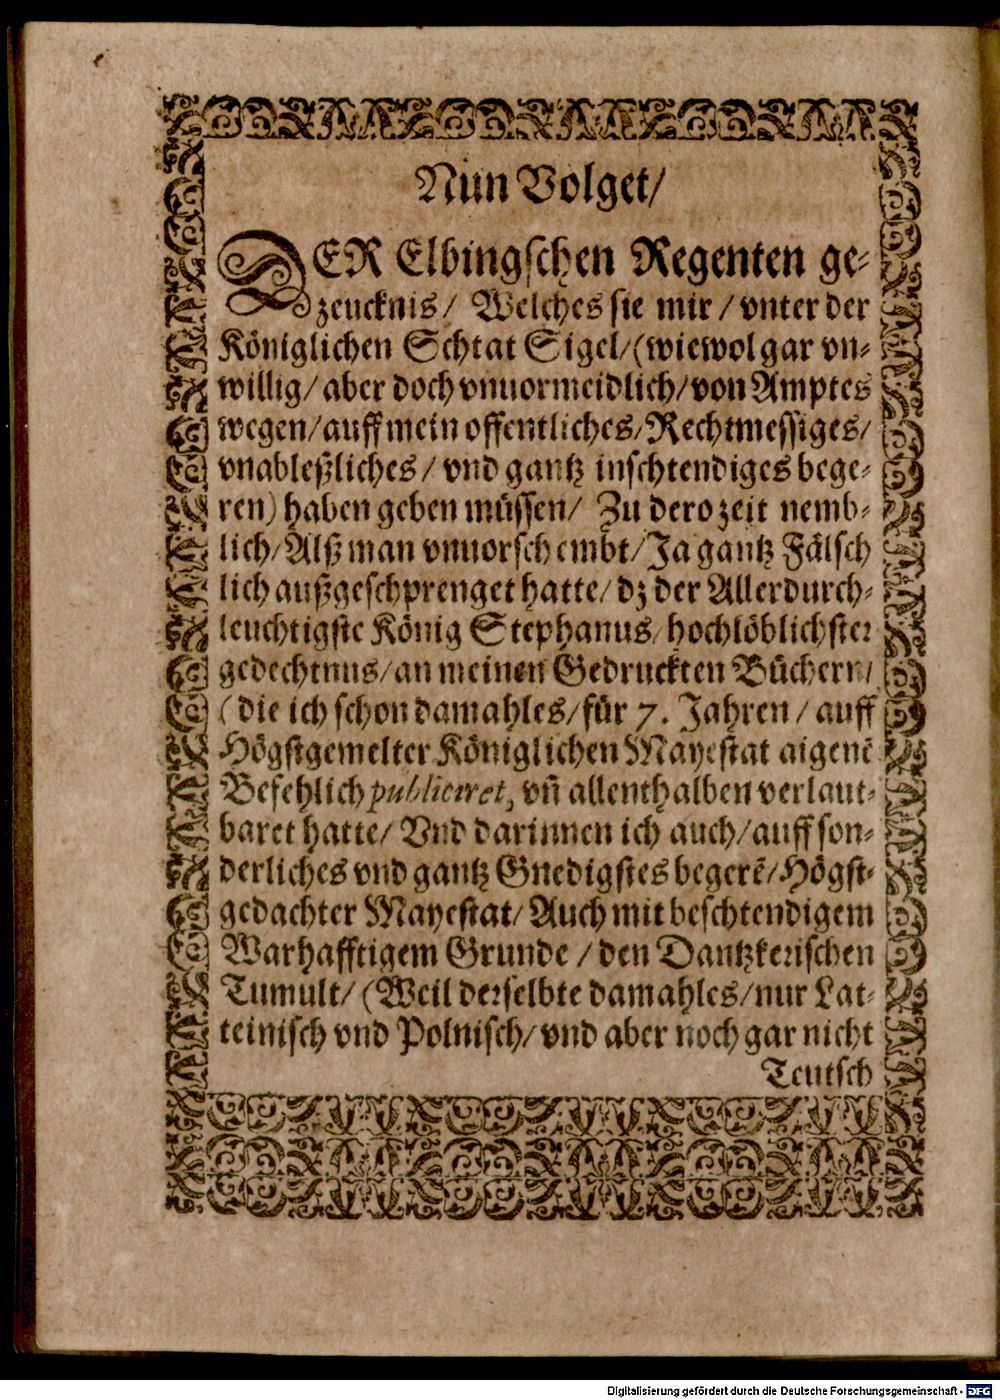 Nun Volget/
DER Elbingschen Regenten ge-
zeucknis/ Welches sie mir/ vnter der
Königlichen Schtat Sigel/(wiewol gar vn-
willig/ aber doch vnuormeidlich/ von Amptes
wegen/ auff mein offentliches/ Rechtmessiges/
vnableßliches/ vnd gantz inschtendiges bege-
ren) haben geben müssen/ Zu dero zeit nemb-
lich/ Alß man vnuorschembt/ Ja gantz Fälsch
lich außgeschprenget hatte/ dz der Allerdurch-
leuchtigste König Stephanus/ hochlöblichster
gedechtnus/ an meinen Gedruckten Büchern/
(die ich schon damahles/ für 7. Jahren/ auff
Högstgemelter Königlichen Mayestat aigenē
Befehlich publiciret, vñ allenthalben verlaut-
baret hatte/ Vnd darinnen ich auch/ auff son-
derliches vnd gantz Gnedigstes begerē/ Högst-
gedachter Mayestat/ Auch mit beschtendigem
Warhafftigem Grunde/ den Dantzkerischen
Tumult/ (Weil derselbte damahles/ nur Lat-
teinisch vnd Polnisch/ vnd aber noch gar nicht
Teutsch
Digitalisierung gefördert durch die Deutsche Forschungsgemeinschaft - DFG